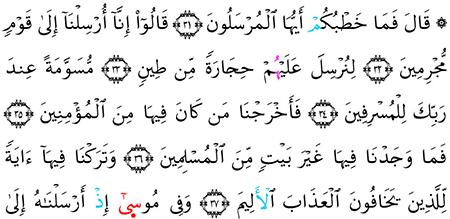 ۞ قَالَ فَمَا خَطْبُكُمْ أَيُّهَا ٱلْمُرْسَلُونَ ﴿٣١﴾ قَالُوٓا۟ إِنَّآ أُرْسِلْنَآ إِلَىٰ قَوْمٍ
مُّجْرِمِينَ ﴿٣٢﴾ لِنُرْسِلَ عَلَيْهِمْ حِجَارَةً مِّن طِينٍ ﴿٣٣﴾ مُّسَوَّمَةً عِندَ
رَبِّكَ لِلْمُسْرِفِينَ ﴿٣٤﴾ فَأَخْرَجْنَا مَن كَانَ فِيهَا مِنَ ٱلْمُؤْمِنِينَ ﴿٣٥﴾
فَمَا وَجَدْنَا فِيهَا غَيْرَ بَيْتٍ مِّنَ ٱلْمُسْلِمِينَ ﴿٣٦﴾ وَتَرَكْنَا فِيهَآ ءَايَةً
لِّلَّذِينَ يَخَافُونَ ٱلْعَذَابَ ٱلْأَلِيمَ ﴿٣٧﴾ وَفِى مُوسَىٰٓ إِذْ أَرْسَلْنَـٰهُ إِلَىٰ